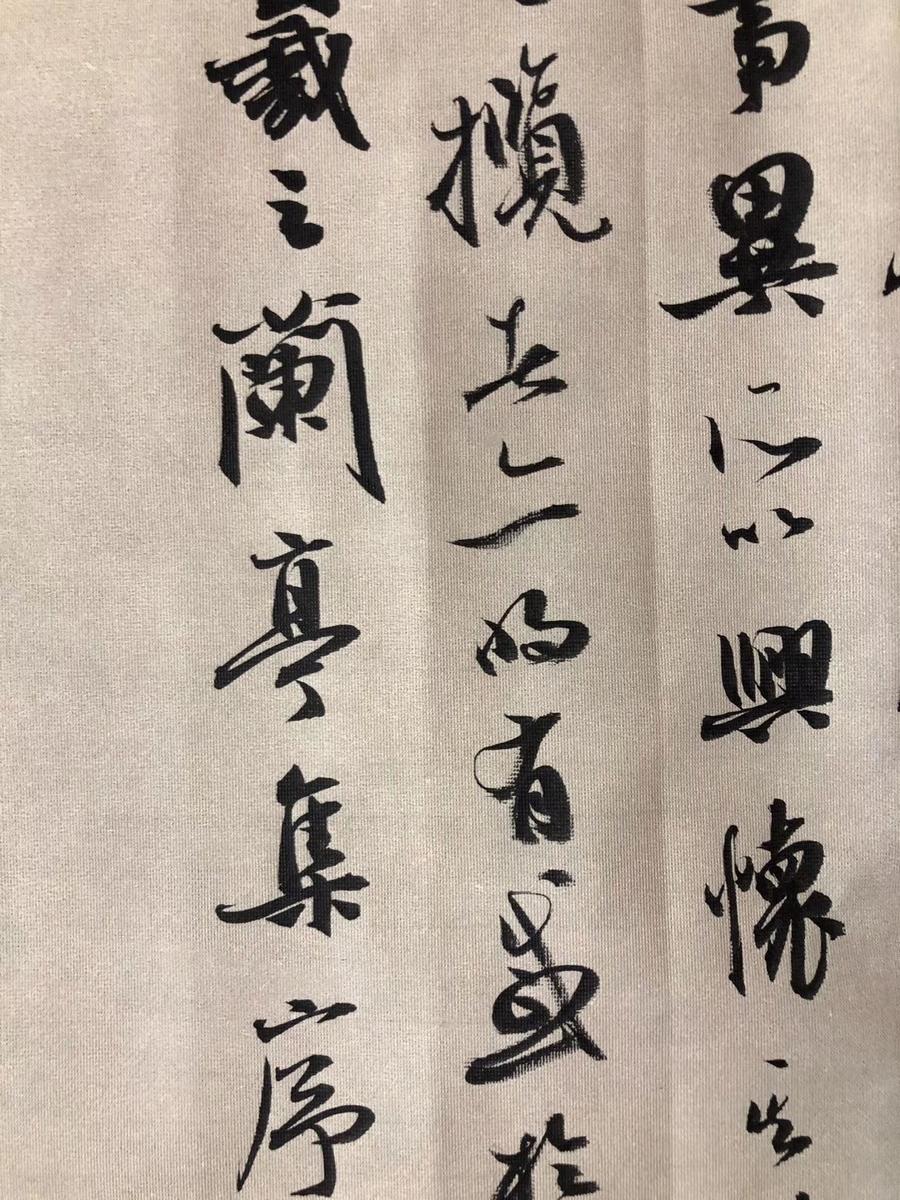 事異所以興懷其
攬者亦將有感於
羲之蘭亭集序